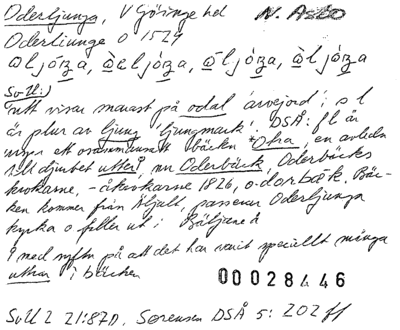 Oderljunga, V Göinge hd N. Åsbo
Oderliunge o 1524
SvU:
Tritt visar snarast på odal 'arvejord'; s l
är plur av ljung 'ljungmark'. DSÅ: f l är
ett bäcken *Otra, en avledn
till djurbet utter?, nu Oderbäck, Oderbäcks
krokarne, -åkrokarne 1826, o-dorbäk. Bäc-
ken kommer från passerar Oderljunga
kyrka o faller ut i Bäljaneå
? med syftn på att det har varit speciellt många
uttrar i bäcken
00028446
SvU 2 21:87D, Sørensen DSÅ 5: 202 ff